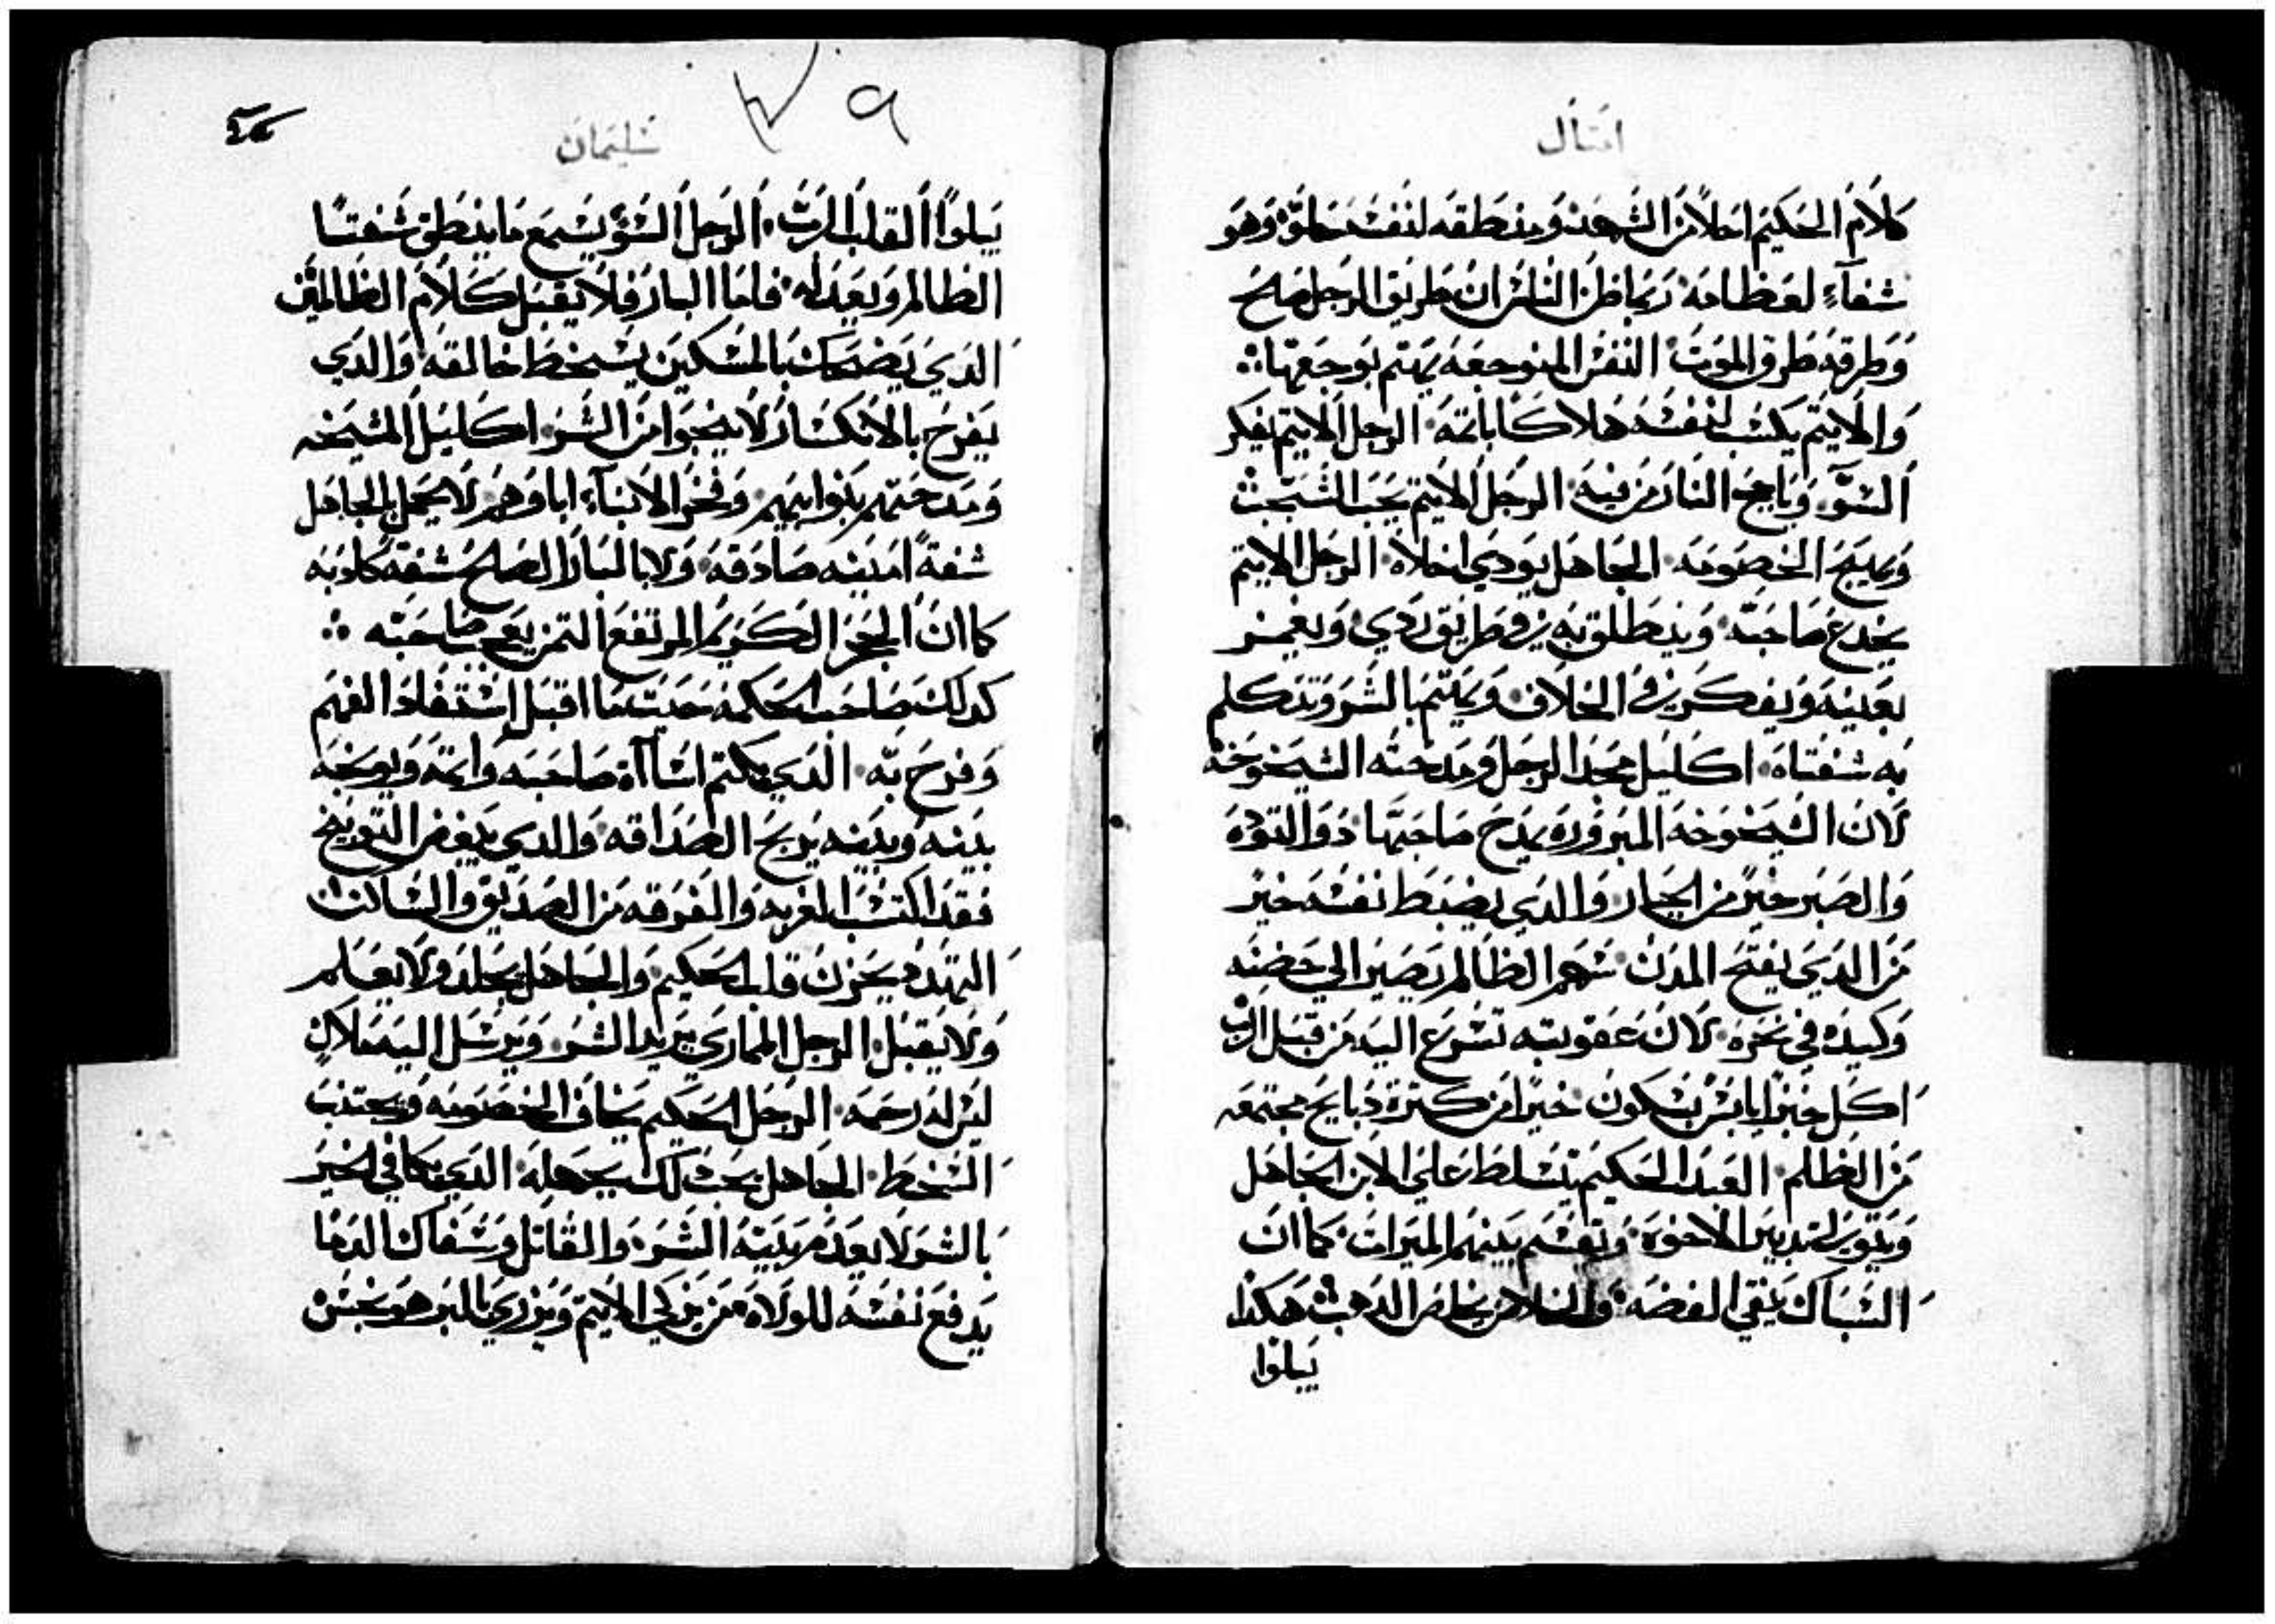 امثال
كلام الحكيم احلا من الشهد ومنطقه لنفسه حلوة وهو
شفاء لعظامه ربما ظن الناس ان طريق الرجل صلح
وطرقه طرق الموت النفس المتوجعة يهتم بوجعها
والاثيم يكسب لنفسه هلاكا باثمه الرجل الاثيم يفكر
السو وتاجج النار من فيه الرجل الاثيم يحب الشجب
ويهيج الخصومه الجاهل يودي اخلاه الرجل الاثيم
يخدع صاحبه وينطلق به في طريق ردي ويغمز
بعينه ويفكر في الخلاف ويهتم بالشر وتتكلم
به شفتاه اكليل مجد الرجل ومدحته الشيخوخه
لان الشيخوخه المبروره يمدح صاحبها ذو التوده
والصبر خير من الجبار والدي يضبط نفسه خير
من الدي يفتح المدن سهم الظالم يصير الي حضنه
وكيده في نحره لان عقوبته تسرع اليه من قبل الرب
اكل خبز يابس بسكون خير من كثرة دبايح مجتمعه
من الظلم العبد الحكيم يتسلط علي الابن الجاهل
ويتوسط بين الاخوة وتقسم بينهم الميرات كما ان
السباك ينقي الفضه والخلاص يخلص الدهب هكدا
يبلوا
سليمان
يبلوا القلب الرب الرجل السؤ يسمع ما ينطق شفتا
الظالم وبعداه فاما البار فلا يقبل كلام الظالمين
الدي يضحك بالمسكين يسخط خالقه والدي
يفرح بالانكسار لا ينجوا من الشر اكليل المشيخه
ومدحتهم بنوا بنيهم وفخر الابناء اباوهم لا يجمل بالجاهل
شفة امينه صادقه ولا بالبار الصلح شفة كاذبه
كما ان الحجر الكريم المرتفع التمن يعجب صاحبه
كدلك صاحب الحكمه حيث ما اقبل استفاد الفهم
وفرح به الدي يكتم اساأة صاحبه واثمه ويوبخه
بينه وبينه يربح الصداقه والدي يبغض التوبيخ
فقد اكتسب الغربه والفرقه من الصديق والساكت
التهدد يحزن قلب الحكيم والجاهل يجلد ولا يعلم
ولا يقبل الرجل المماري يريد الشر ويرسل اليه ملاك
ليس له رحمه الرجل الحكيم يخاف الخصومه ويجتنب
السخط الجاهل يحث لك بجهله الدي يكافي الخير
بالشر لا يعدم بيته الشر والقاتل وسفاك الدما
يدفع نفسه للولاه من يزكي الاثيم ويزري بالبر هو نجس